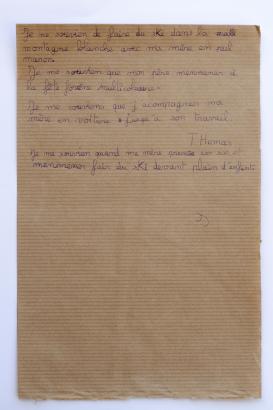 Je me souvien de faire du ski dans la
montagne blanche avec ma mère en
Je me souvien que mon père mennener a
la fête foraine multicolore.
Je me souviens que j acompagner ma
mère en voiture jusqu'a son travail.
Thomas
Je me souvien quand me mère et
mennener fair du ski devant plain d'enfants